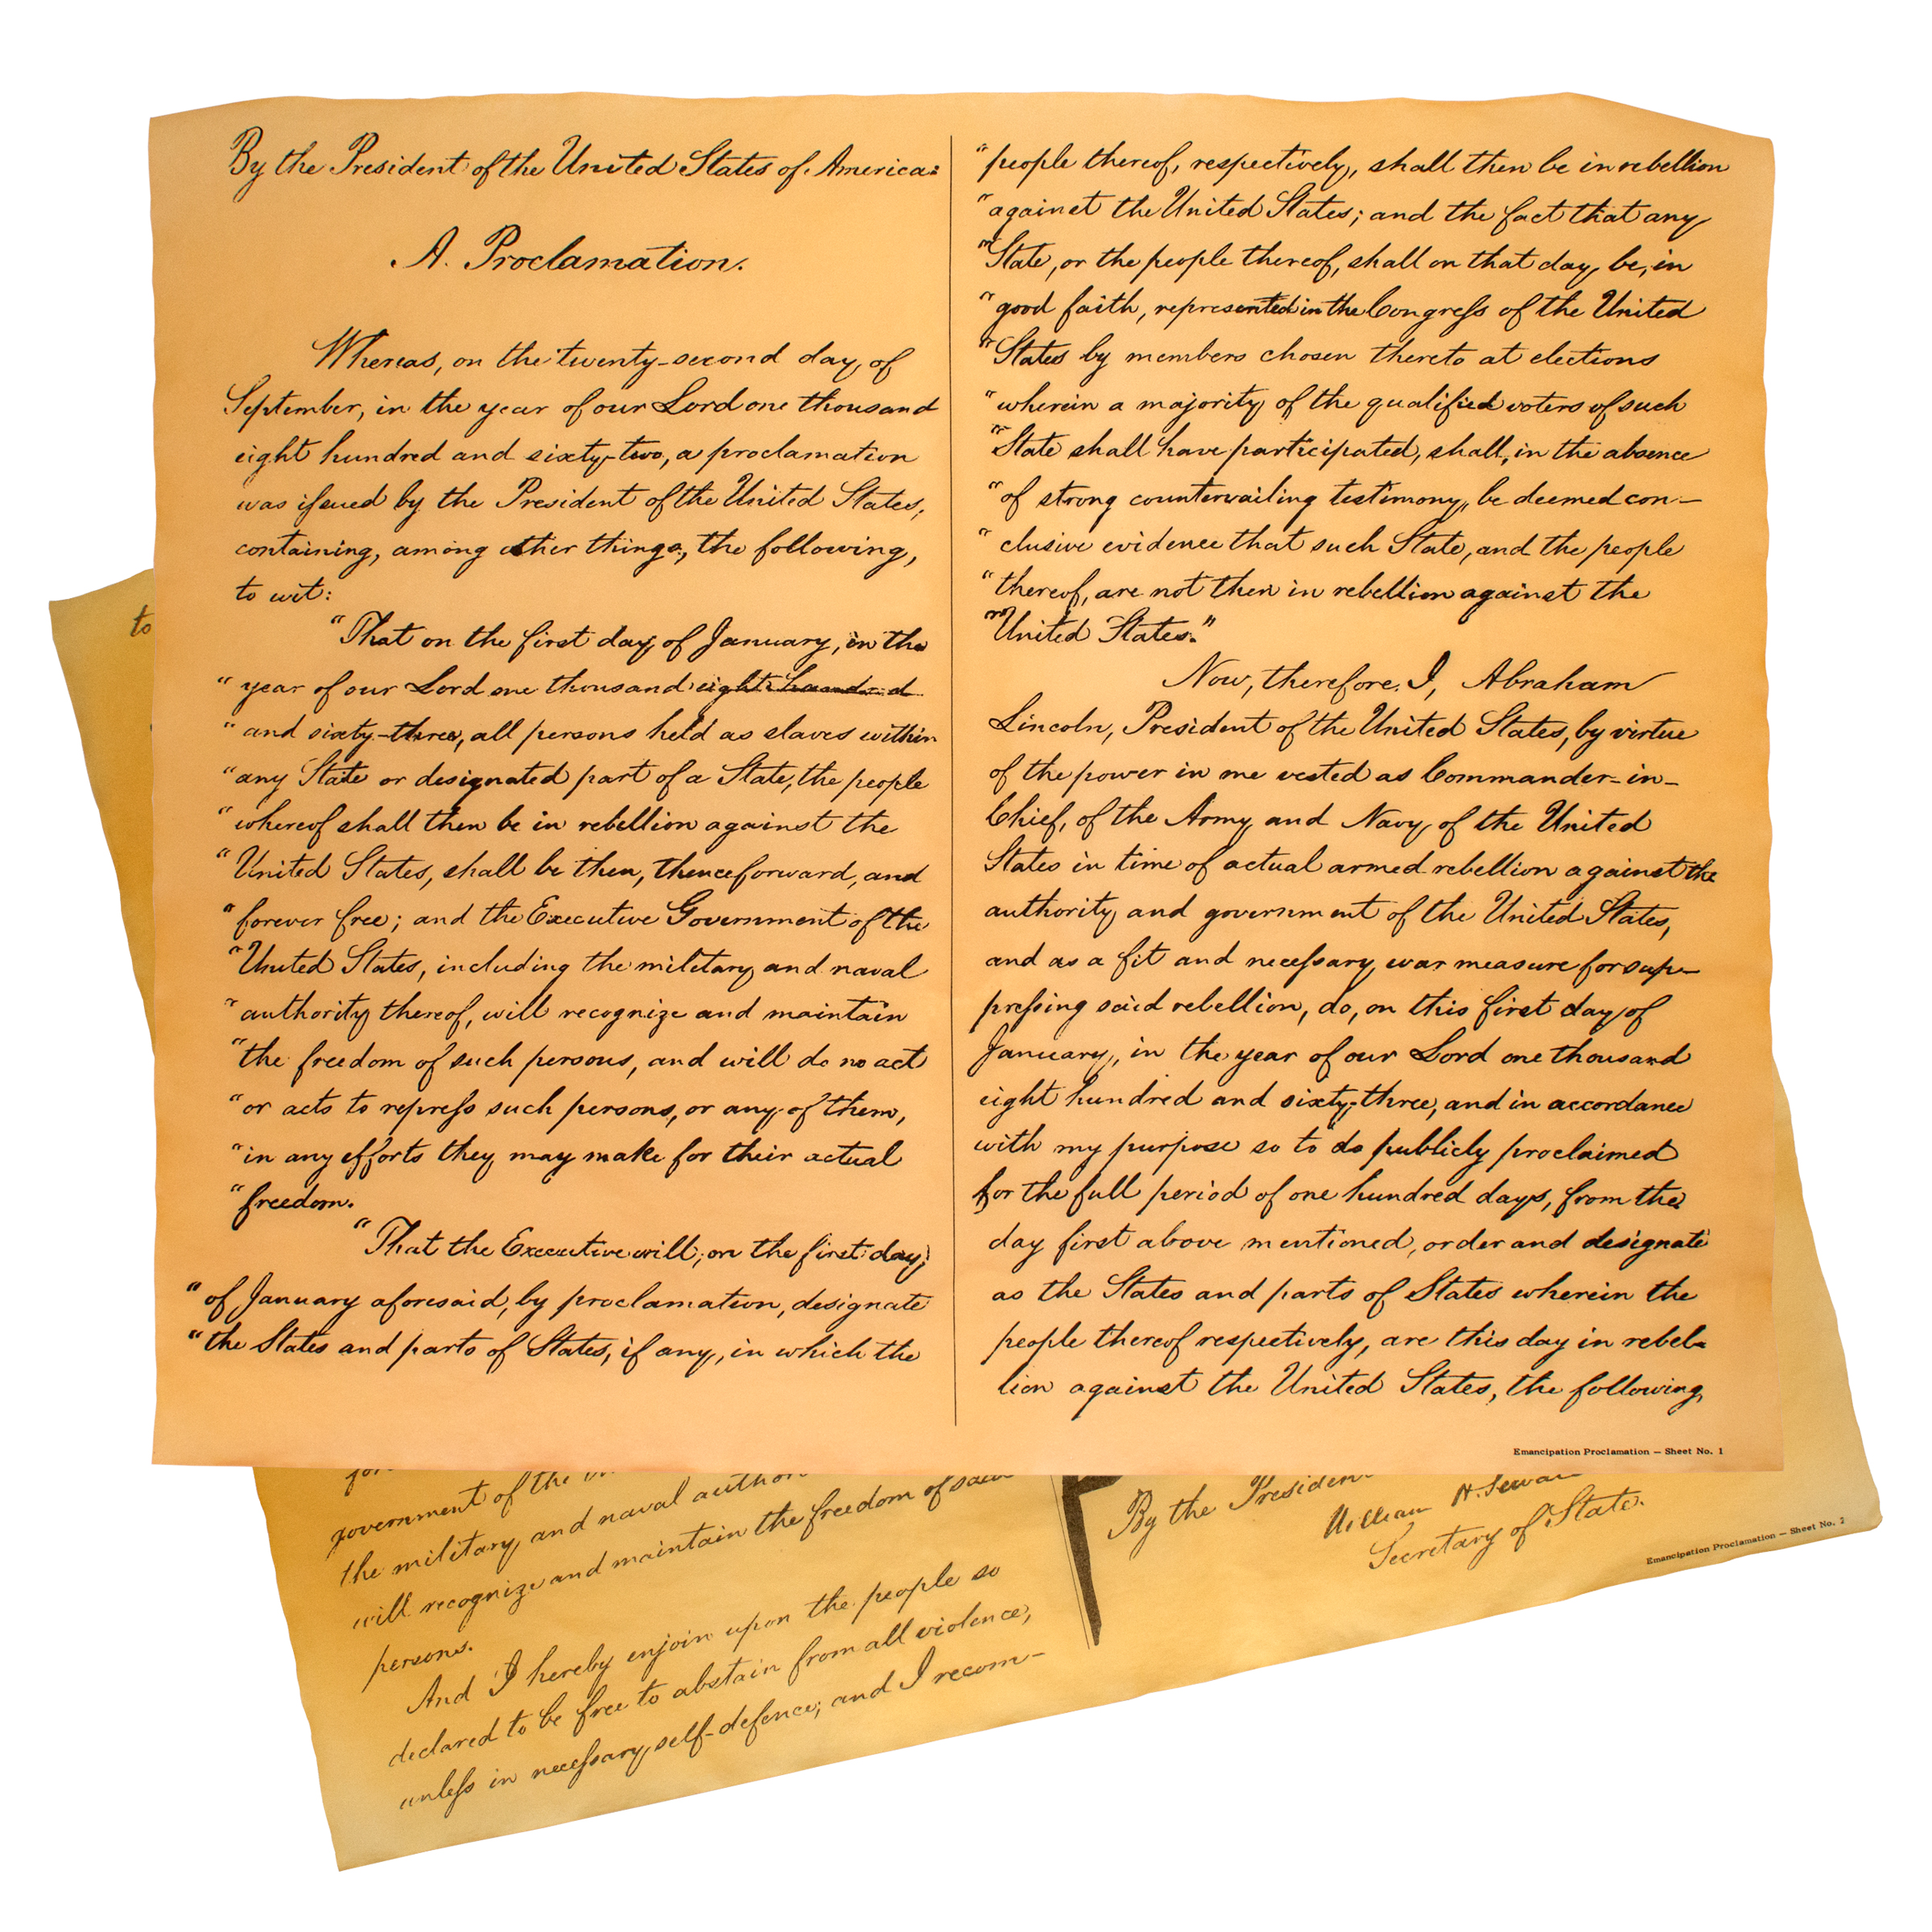 By the President of the United States of America:
A. Proclamation.
Whereas, on the twenty-second day of
September, in the year of our Lord one thousand
eight hundred and sixty-two, a proclamation
was issued by the President of the United States,
containing, among other things, the following,
to wit:
"That on the first day of January, in the
"year of our Lord one thousand eight hundred
"and sixty-three, all persons held as slaves within
"any State or designated part of a State, the people
"whereof shall then be in rebellion against the
"United States, shall be then, thenceforward, and
"forever free; and the Executive Government of the
"United States, including the military and naval
"authority thereof, will recognize and maintain
"the freedom of such persons, and will do no act
"or acts to repress such persons, or any of them,
"in any efforts they may make for their actual
"freedom.
"That the Executive will, on the first day,
"of January aforesaid, by proclamation, designate
"the States and parts of States, if any, in which the
"people thereof, respectively, shall then be in rebellion
"against the United States; and the fact that any
"State, or the people thereof, shall on that day be, in
"good faith, represented in the Congress of the United
"States by members chosen thereto at elections
"wherein a majority of the qualified voters of such
"State shall have participated, shall, in the absence
"of strong countervailing testimony, be deemed con-
"clusive evidence that such State, and the people
"thereof, are not then in rebellion against the
"United States."
Now, therefore, I, Abraham
Lincoln, President of the United States, by virtue
of the power in me vested as Commander-in-
Chief, of the Army and Navy of the United
States in time of actual armed rebellion against the
authority and government of the United States,
and as a fit and necessary war measure for sup-
pressing said rebellion, do, on this first day of
January, in the year of our Lord one thousand
eight hundred and sixty-three, and in accordance
with my purpose so to do publicly proclaimed
for the full period of one hundred days, from the
day first above mentioned, order and designate
as the States and parts of States wherein the
people thereof respectively, are this day in rebel-
lion against the United States, the following,
Emancipation Proclamation — Sheet No. 1
to
government of the
the military and naval
will recognize and maintain the freedom of said
persons.
And I hereby enjoin upon the people so
declared to be free to abstain from all violence,
unless in necessary self-defence; and I recom-
By the President
William H. Seward
Secretary of State.
Emancipation Proclamation — Sheet No. 2